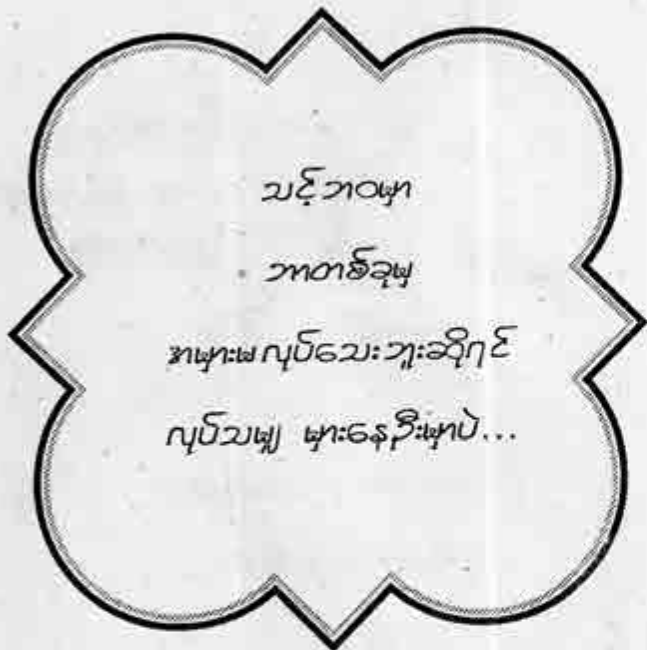 သင့်ဘဝမှာ
ဘာတစ်ခုမှ
အမှားမလုပ်သေးဘူးဆိုရင်
လုပ်သမျှ မှားနေဦးမှာပဲ...